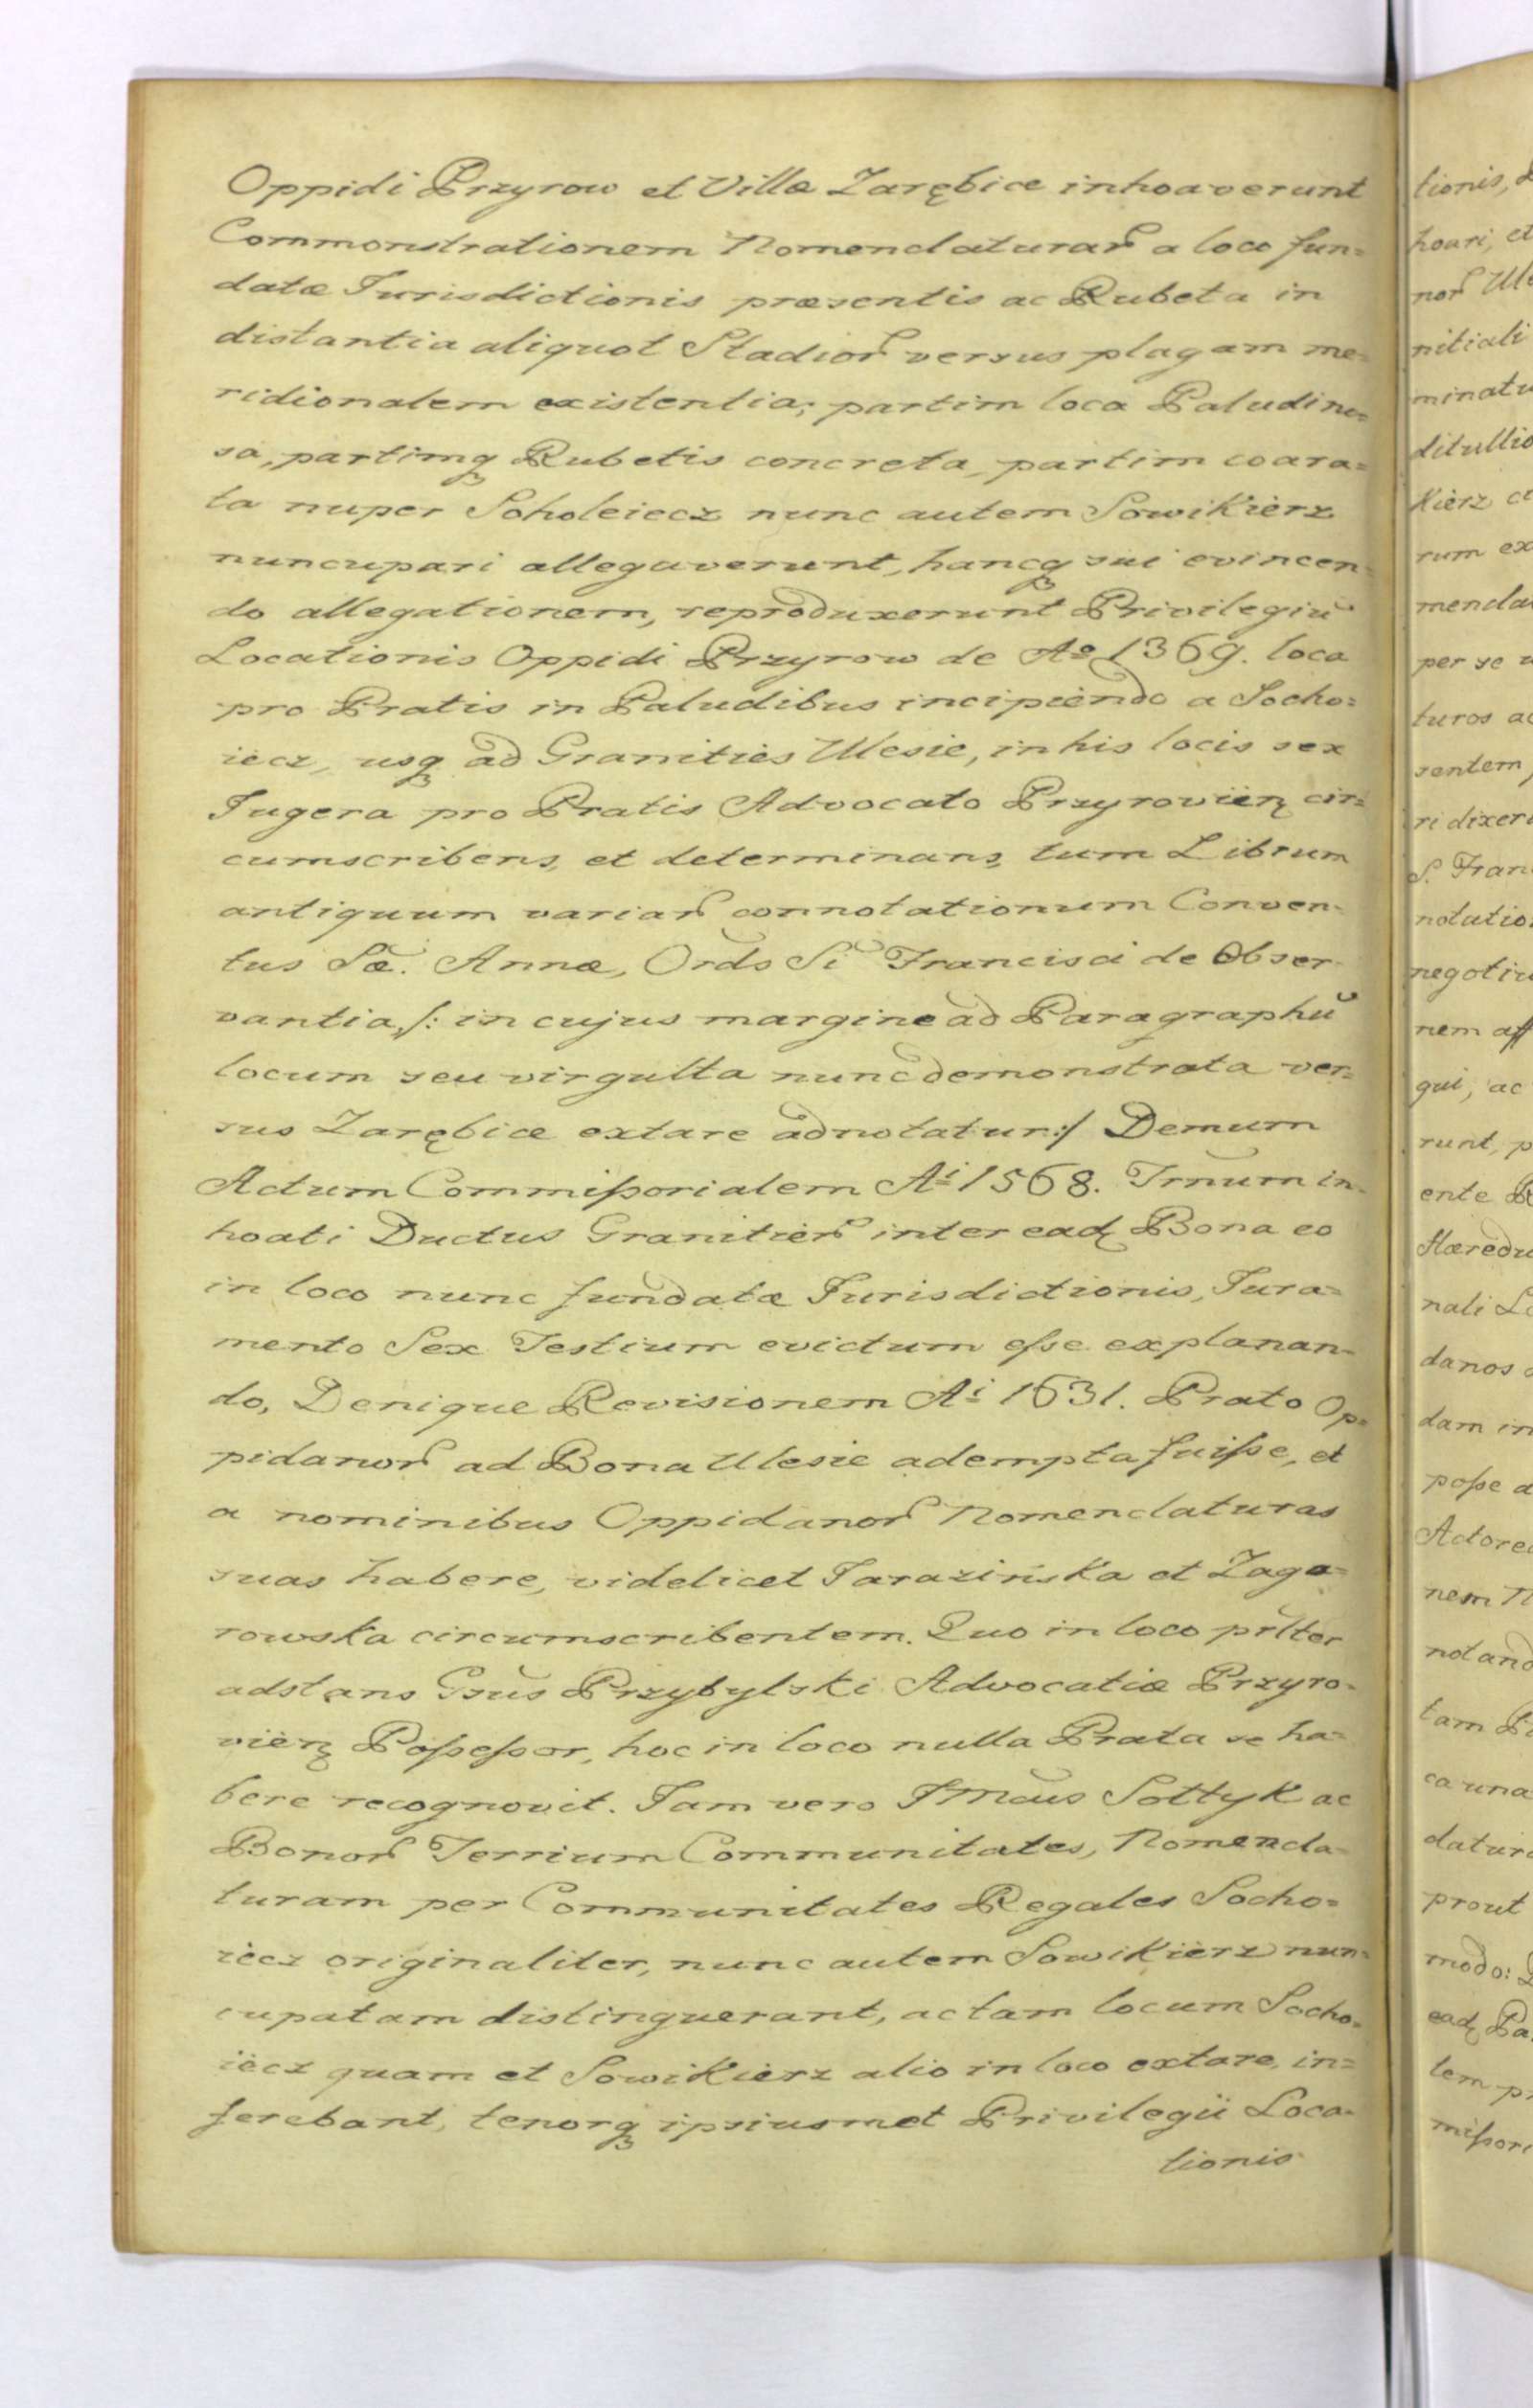 Oppidi Przyrow et Villæ Zarębice inhoaverunt
Commonstrationem Nomenclaturarꝝ a loco fun=
datæ Jurisdictionis præsentis ac Rubeta in
distantia aliquot Stadiorꝝ versus plagam me=
ridionalem existentia; partim loca Paludino=
sa, partimqꝫ Rubetis concreta, partim coara=
ta nuper Soholeiecz nunc autem SowiKierz
nuncupari allegaverunt, hancqꝫ sui evincen=
do allegationem, reproduxerunt Privilegiū
Locationis Oppidi Przyrow de Aº 1369. loca
pro Pratis in Paludibus incipiendo a Socho=
iecz, usqꝫ ad Granities Ulesie, in his locis sex
Jugera pro Pratis Advocato Przyrovienꝫ cir=
cumscribens, et determinans, tum Librum
antiquum variarꝝ connotationum Conven=
tus Sæ. Annæ, Ords Si Francisci de Obser=
vantia, /: in cujus margine ad Paragraphū
locum seu virgulta nunc demonstrata ver=
sus Zarębice extare adnotatur :/ Demum
Actum Commißorialem Aⁱ 1568. Trnum in=
hoati Ductus Granitierꝝ inter eadꝫ Bona eo
in loco nunc fundatæ Jurisdictionis, Jura=
mento Sex Testium evictum eße explanan=
do, Denique Revisionem Aⁱ 1631. Prato Op=
pidanorꝝ ad Bona Ulesie adempta fuiße, et
a nominibus Oppidanorꝝ Nomenclaturas
suas habere, videlicet Tarazińska et Zaga=
rowska circumscribentem. Quo in loco prlter
adstans Gsus Przybylski Advocatiæ Przyro=
vienꝫ Poßeßor, hoc in loco nulla Prata se ha=
bere recognovit. Jam vero Jmcus Sołtyk ac
Bonorꝝ Terrium Communitates, Nomencla=
turam per Communitates Regales Socho=
iecz originaliter, nunc autem SowiKierz nun=
cupatam distinguerant, ac tam locum Socho=
iecz quam et SowiKierz alio in loco extare, in=
ferebant, tenorqꝫ ipsiusmet Privilegii Loca=
tionis